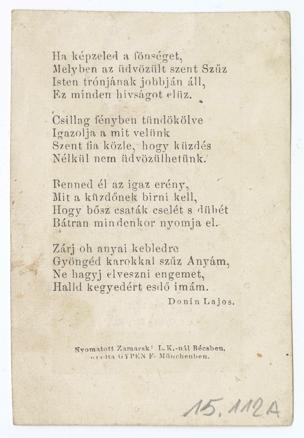 Ha képzeled a fönséget,
Melyben az üdvözült szent Szűz
Isten trónjának jobbján áll,
Ez minden hivságot elűz.
Csillag fényben tündökölve
Igazolja a mit velünk
Szent fia közle, hogy küzdés
Nélkül nem üdvözülhetünk.
Benned él az igaz erény,
Mit a küzdőnek birni kell,
Hogy bősz csaták cselét s dühét
Bátran mindenkor nyomja el.
Zárj oh anyai kebledre
Gyöngéd karokkal szűz Anyám,
Ne hagyj elveszni engemet,
Halld kegyedért esdő imám.
Donin Lajos.
Nyomatott Zamarski L. K.-nál Bécsben,
GYPEN F. Münchenben.
15.112A